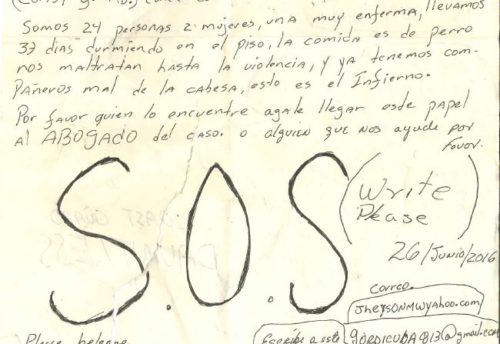 Somos 24 personas 2 mujeres, una muy enferma, llevamos
37 dias durmiendo en el piso, la comida es de perro
nos maltratan hasta la violencia, y ya tenemos com-
pañeros mal de la cabesa, esto es el Infierno.
Por favor quien lo encuentre agale llegar este papel
al ABOGADO del caso. o alguien que nos ayude por
favor.
S.O.S
(Write
Please
26/Junio/2016
correo.
Jheysonmwyahoo.com
Escribe a este
gordicuba813@gmail.com